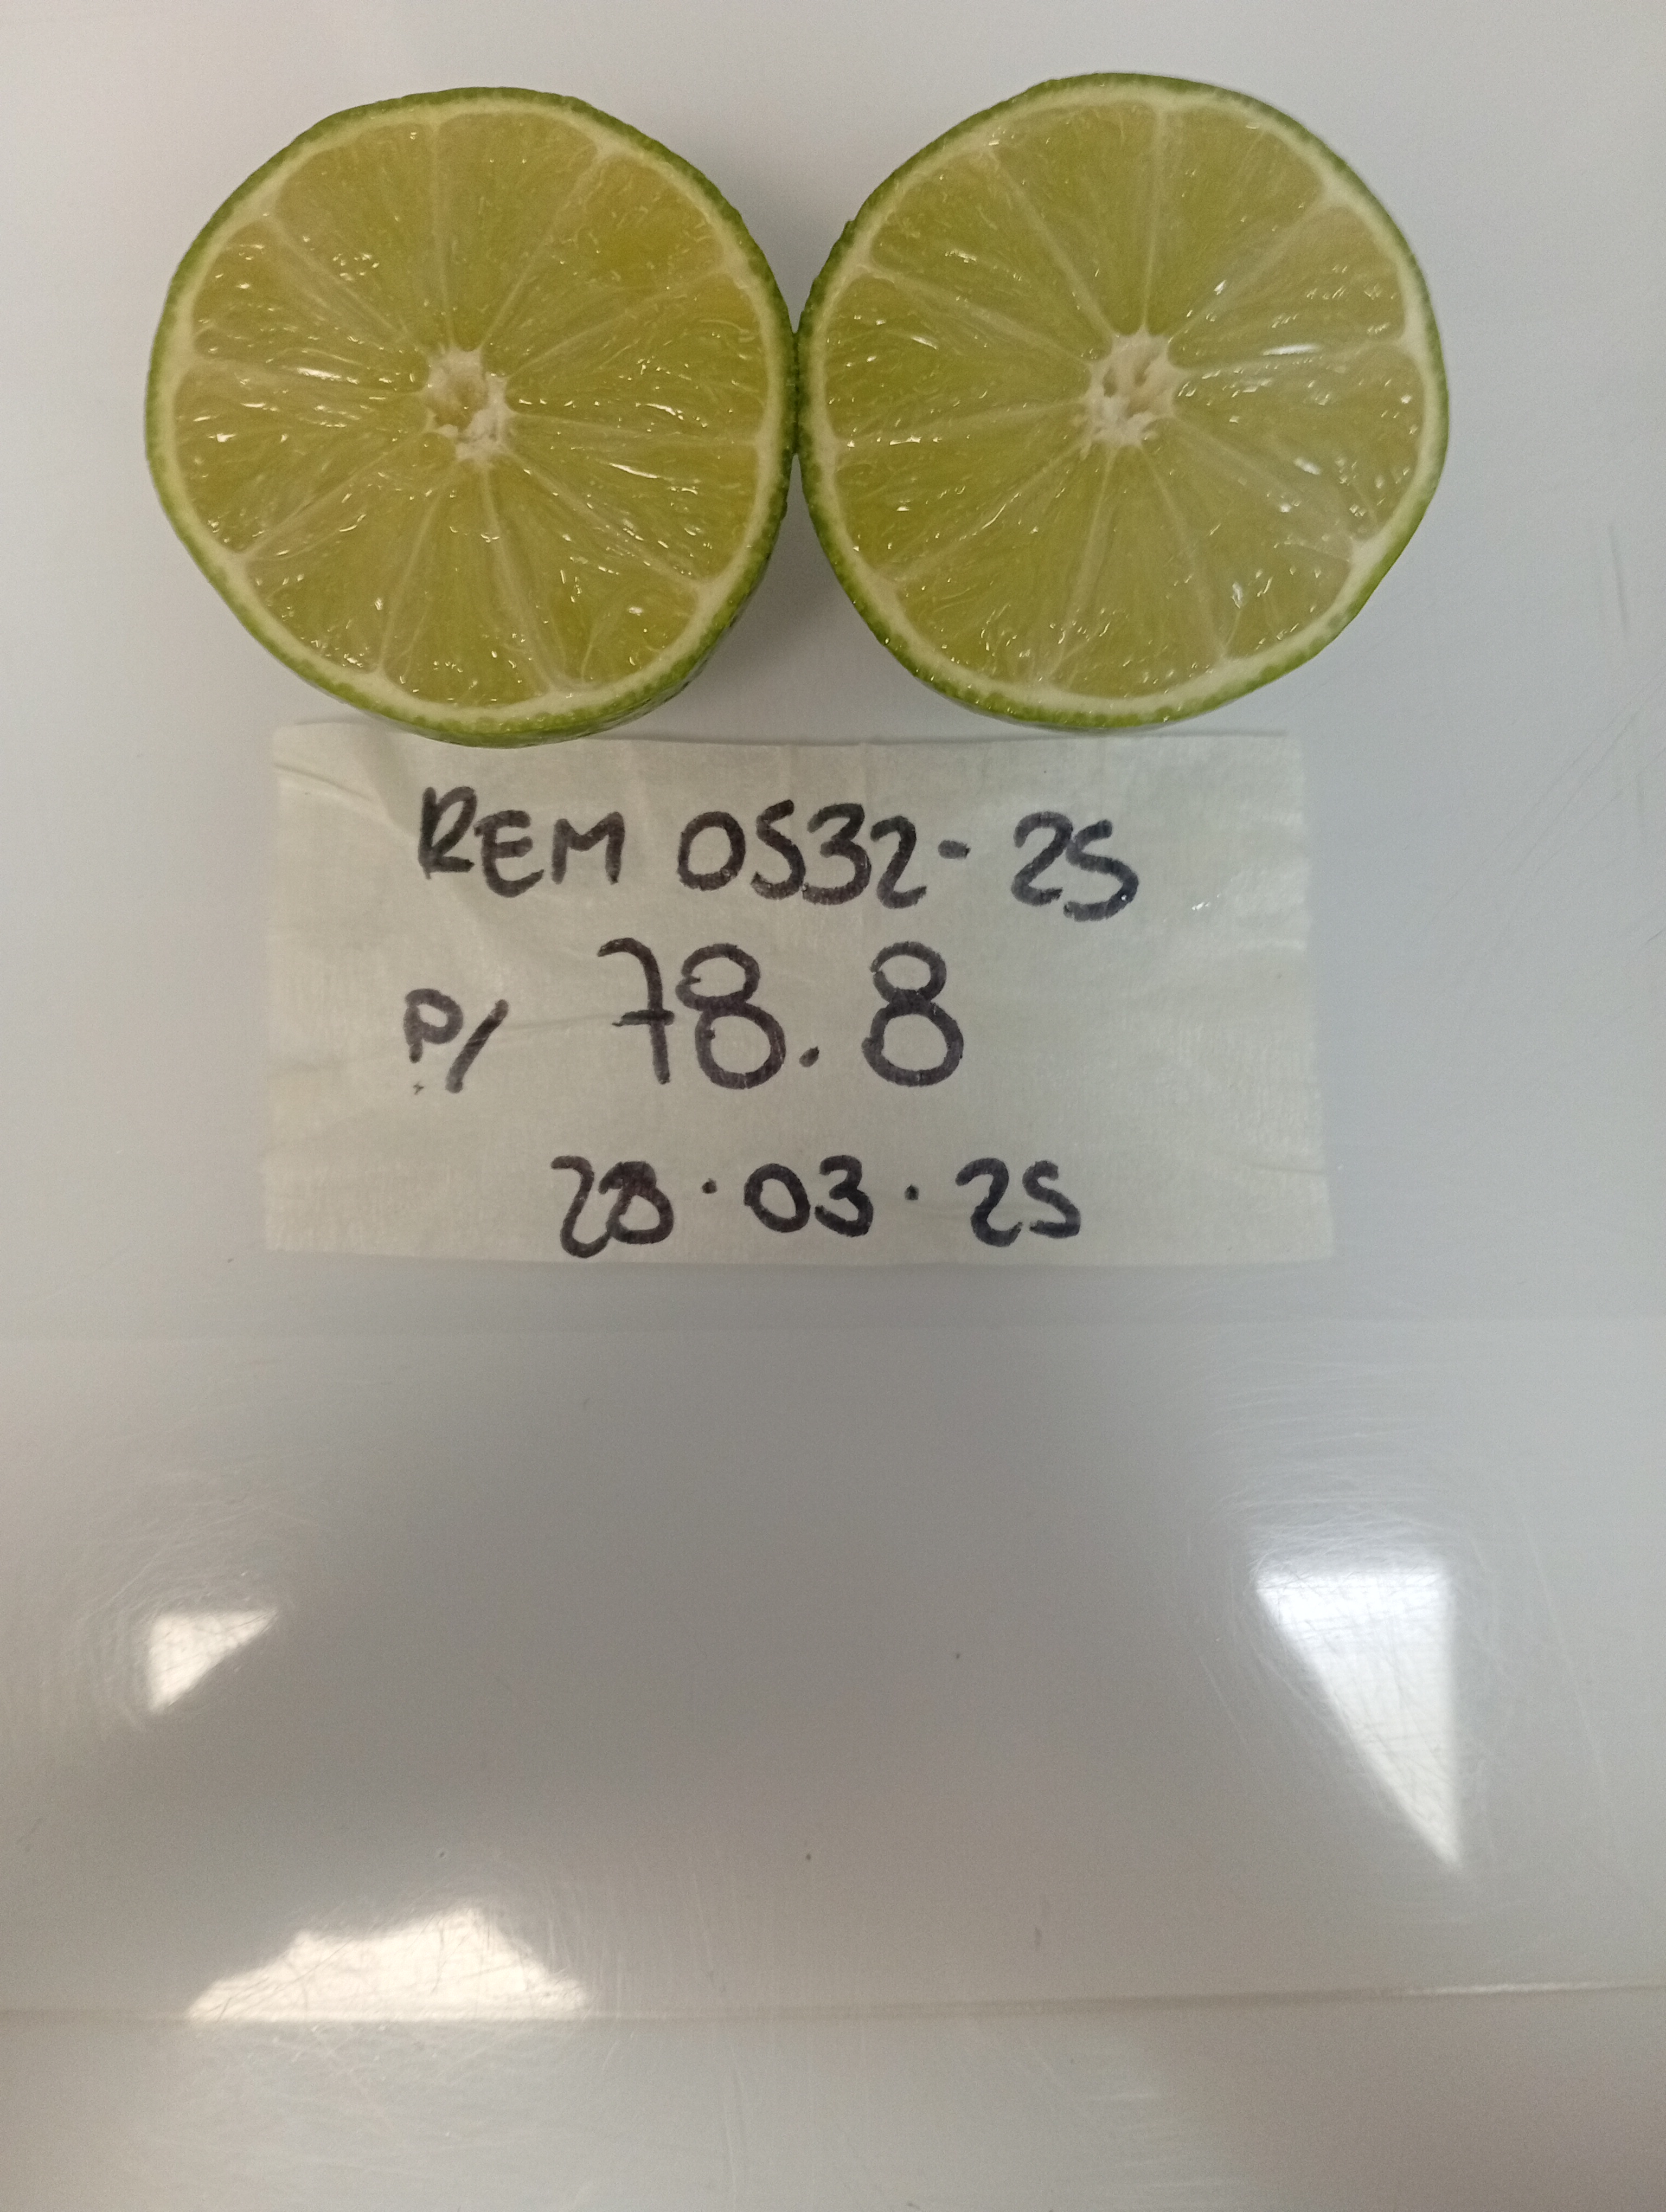 REM 0532-25
P/ 78.8
28.03.25